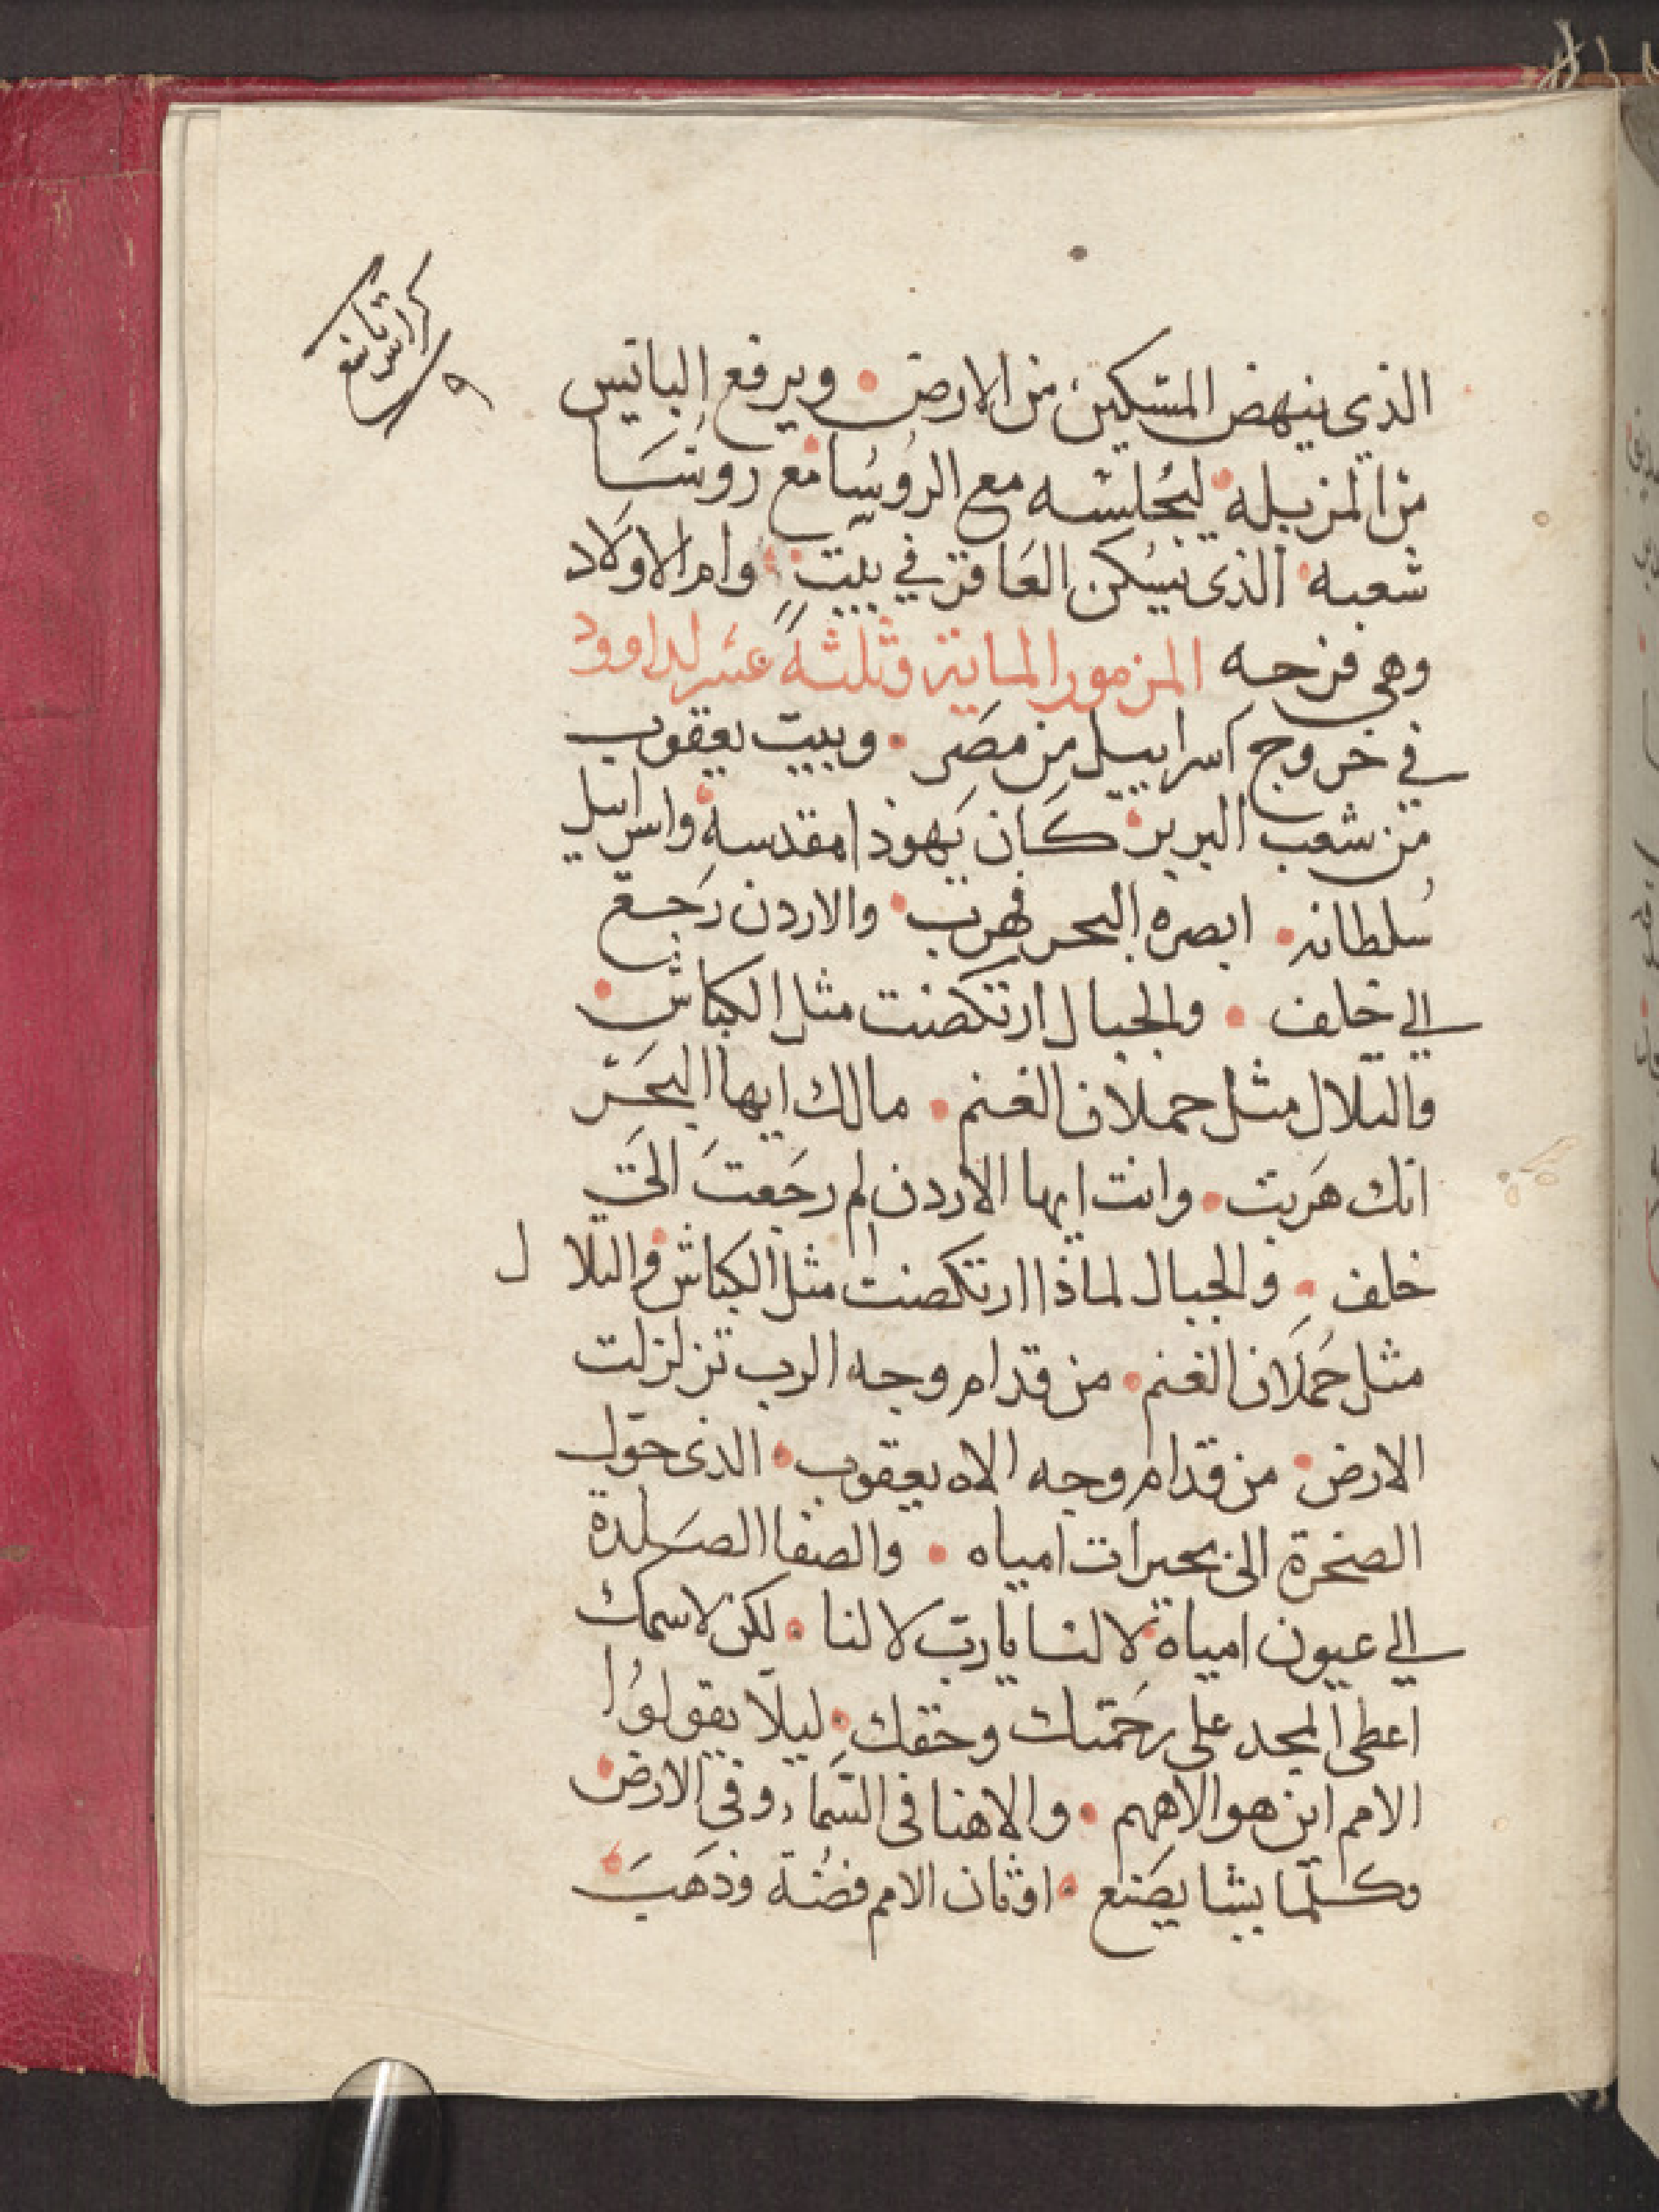 كراس تاسع
٩
الذي ينهض المسكين من الارض • ويرفع البائيس
من المزبله • ليجلسه مع الروسا • مع روسا
شعبه • الذي يسكن العاقر في بيت • وام الاولاد
وهي فرحه المزمور الماية وثلثة عشر لداوود
في خروج اسراييل من مصر • وبيت يعقوب
من شعب البربر • كان يهوذا مقدسه • واسراييل
سلطانه • ابصره البحر فهرب • والاردن رجع
الي خلف • والجبال ارتكضت مثل الكباش •
والتلال مثل حملان الغنم • مالك ايها البحر
انك هربت • وانت ايها الاردن لم رجعت الى
خلف • والجبال لماذا ارتكضت مثل الكباش • والتلا ل
مثل حملان الغنم • من قدام وجه الرب تزلزلت
الارض • من قدام وجه الاه يعقوب • الذى حول
الصخرة الى بحيرات امياه • والصفا الصلدة
الي عيون امياه • لا لنا يارب لا لنا • لكن لاسمك
اعطى المجد على رحمتك وحقك • ليلا يقولوا
الامم اين هو الاههم • والاهنا فى السماء وفى الارض •
وكلما يشا يصنع • اوثان الامم فضة وذهب •